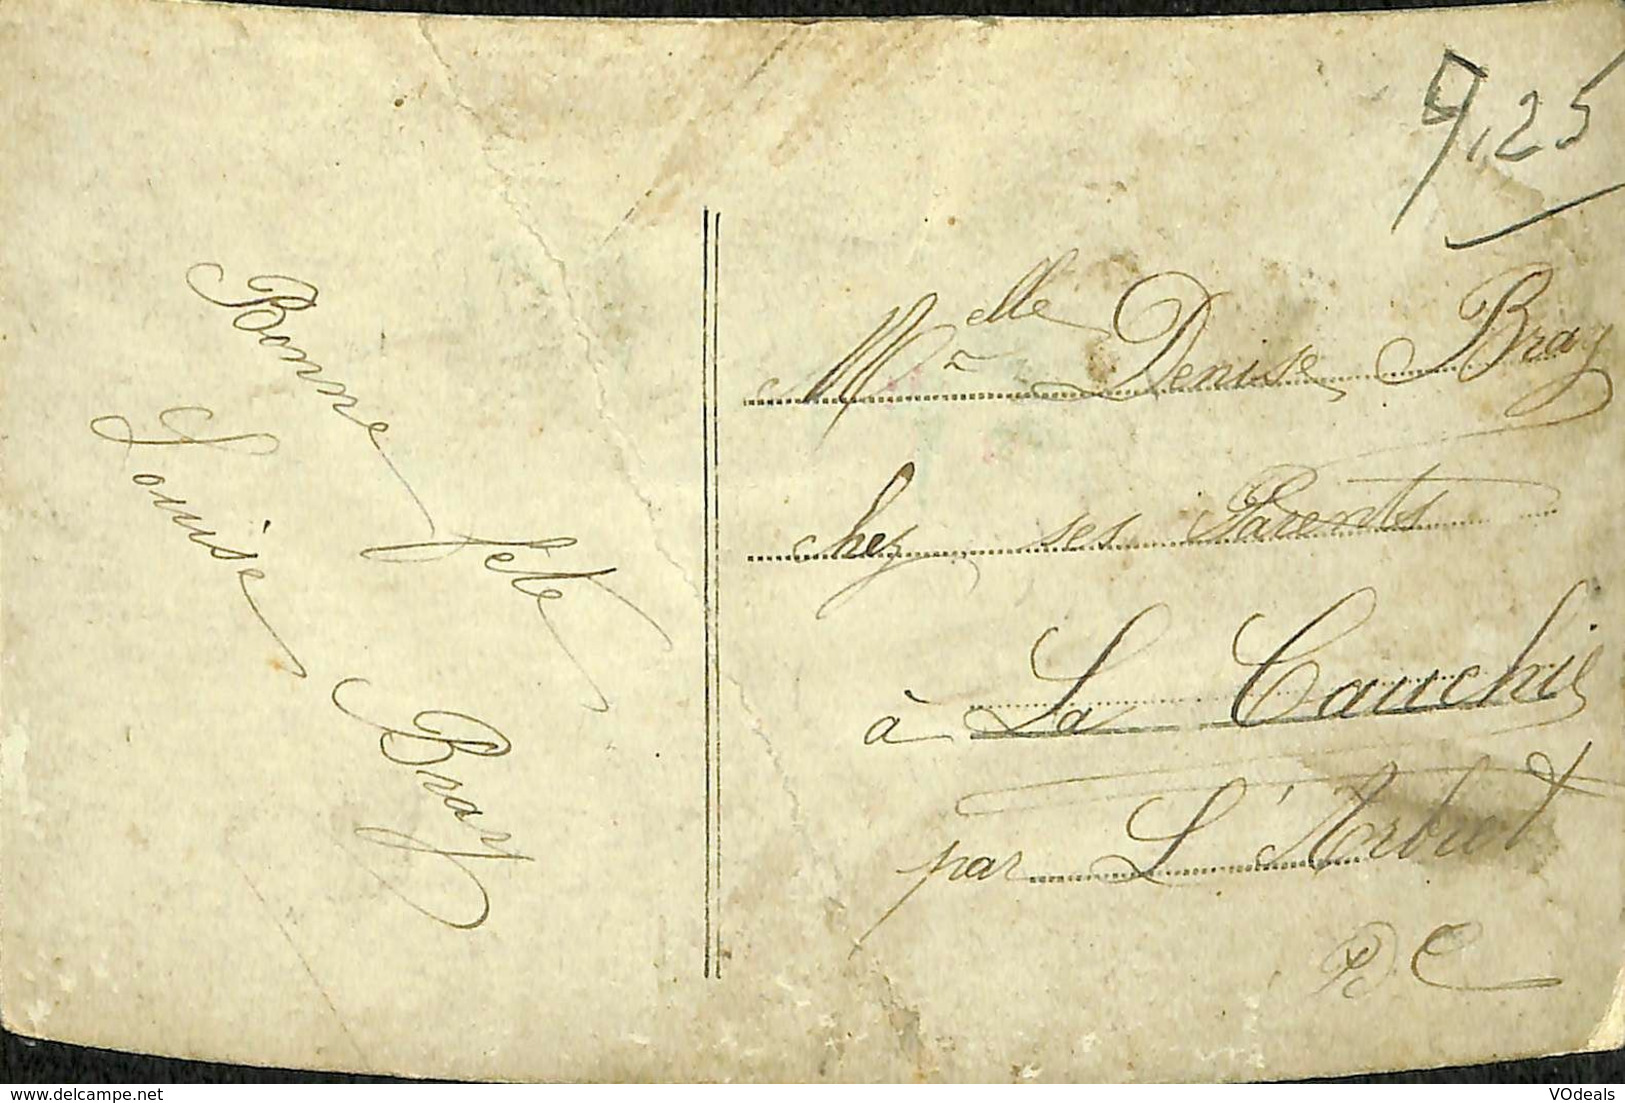 Bonne fête
Louise Bray
9,25
Melle Denise Bray
chez ses Parents
à La Cauchie
par L'Arbret
P. C
www.delcampe.net
VOdeals